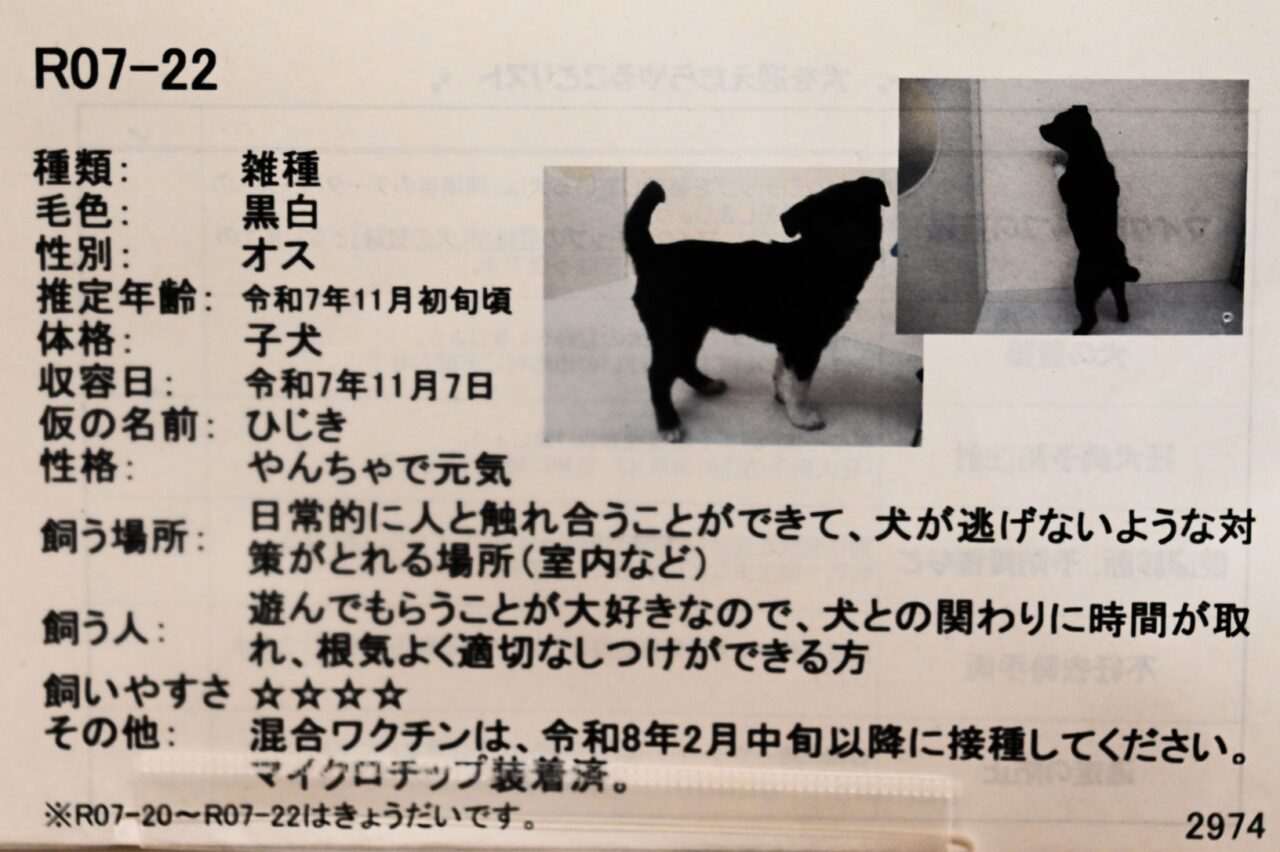 R07-22
種類： 雑種
毛色： 黒白
性別： オス
推定年齢： 令和7年11月初旬頃
体格： 子犬
収容日： 令和7年11月7日
仮の名前： ひじき
性格： やんちゃで元気
飼う場所： 日常的に人と触れ合うことができて、犬が逃げないような対
策がとれる場所（室内など）
飼う人： 遊んでもらうことが大好きなので、犬との関わりに時間が取
れ、根気よく適切なしつけができる方
飼いやすさ ☆☆☆☆
その他： 混合ワクチンは、令和8年2月中旬以降に接種してください。
マイクロチップ装着済。
※R07-20～R07-22はきょうだいです。
2974